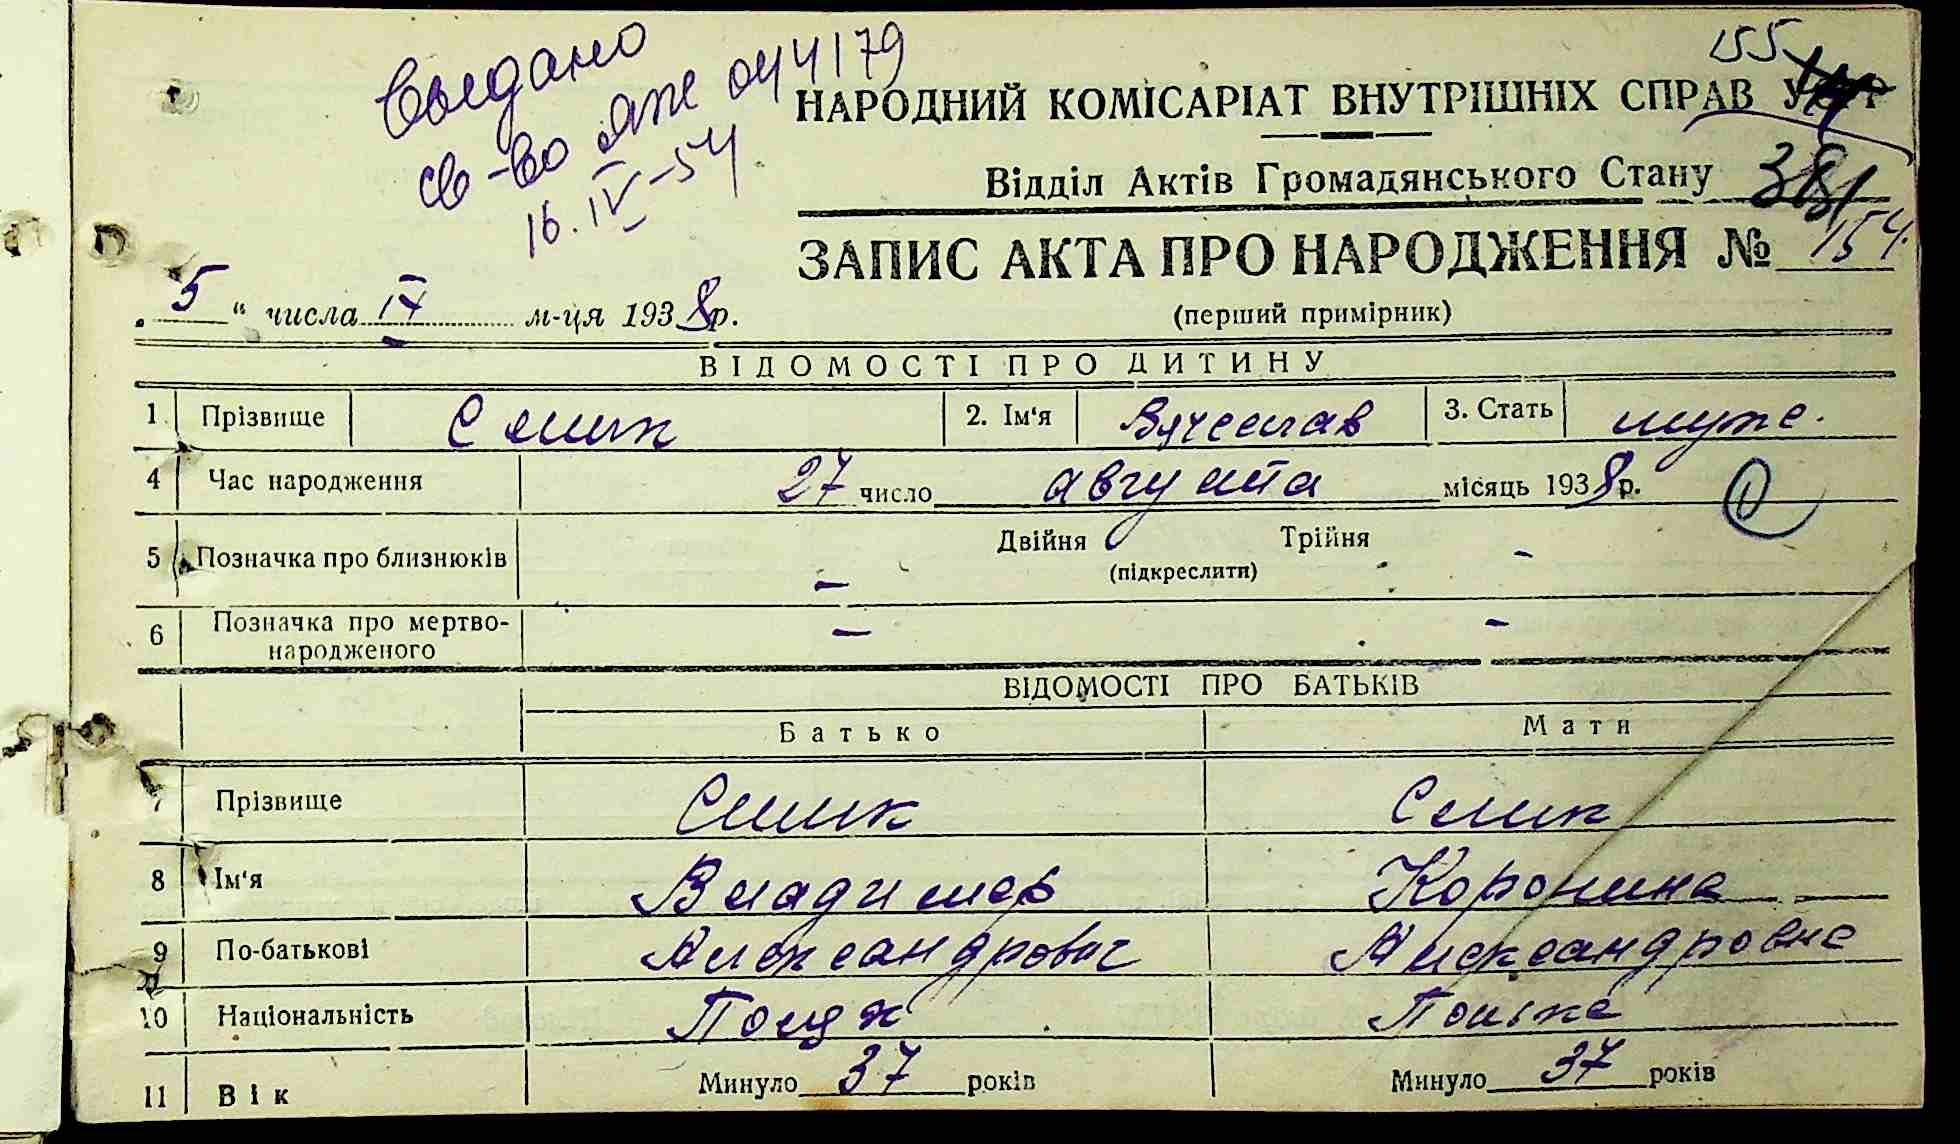 Выдано
св-во ЯЖ 044179
16.IV-54
155
НАРОДНИЙ КОМІСАРІАТ ВНУТРІШНІХ СПРАВ
Відділ Актів Громадянського Стану
381
ЗАПИС АКТА ПРО НАРОДЖЕННЯ № 154.
„5" числа IX м-ця 1938 р.
(перший примірник)
ВІДОМОСТІ ПРО ДИТИНУ
1 Прізвище 2. Ім'я Вячеслав 3. Стать муже.
4 Час народження 27 число августа місяць 1938 р.
5 Позначка про близнюків — Двійня Трійня -
(підкреслити)
6 Позначка про мертво- — -
народженого
ВІДОМОСТІ ПРО БАТЬКІВ
Батько Мати
7 Прізвище
8 Ім'я Владимер
9 По-батькові Александрович Александровна
10 Національність Поляк Полька
11 Вік Минуло 37 років Минуло 37 років